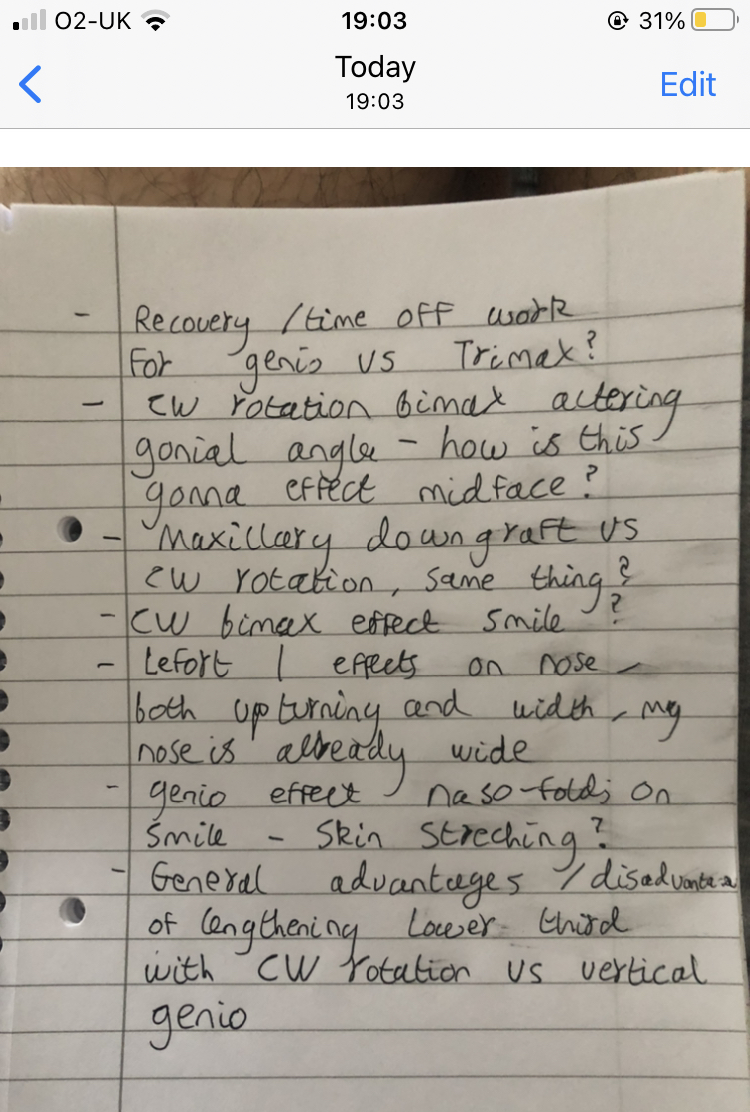 O2-UK 19:03 31%
Today
19:03
Edit
- Recovery / time off work
For genio vs Trimax?
- CW rotation bimax altering
gonial angle - how is this
gonna effect midface?
- Maxillary downgraft vs
CW rotation, same thing?
- CW bimax effect smile?
- Lefort 1 effects on nose -
both upturning and width, my
nose is already wide
- genio effect naso-folds on
smile - skin streching?
- General advantages / disadvanta
of lengthening Lower third
with CW rotation vs vertical
genio